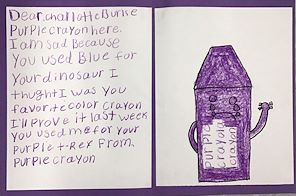 Dear, charlotte Burke
Purple crayon here.
I am sad Because
you used Blue for
your dinosaur I
thught I was you
favorite color crayon
I'll prove it last week
you used me for your
purple t-rex From,
Purple crayon
purple
crayon